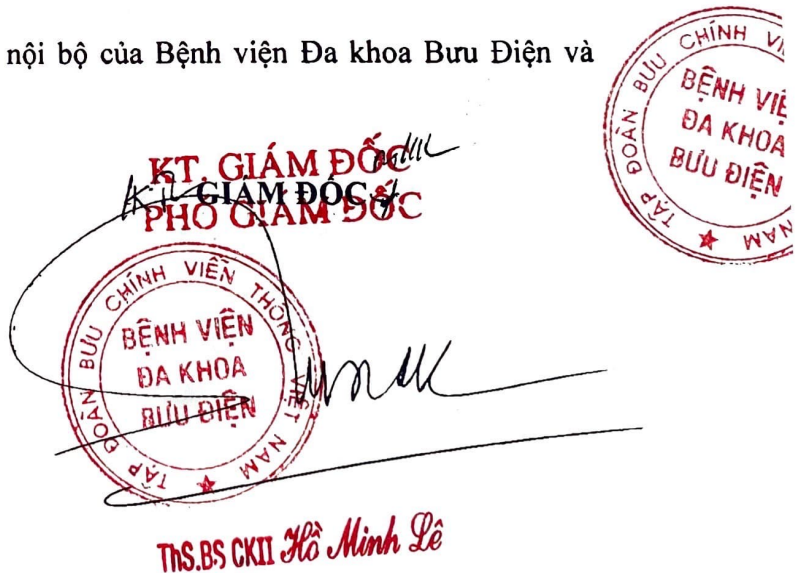 nội bộ của Bệnh viện Đa khoa Bưu Điện và
CHÍNH
TẬP ĐOÀN BƯU
BỆNH VIỆ
ĐA KHOA
BƯU ĐIỆN
NAM
KT. GIÁM ĐỐC
GIÁM ĐỐC
PHÓ GIÁM ĐỐC
TẬP ĐOÀN BƯU CHÍNH VIỄN THÔNG VIỆT NAM
BỆNH VIỆN
ĐA KHOA
BƯU ĐIỆN
ThS.BS CKII Hồ Minh Lê